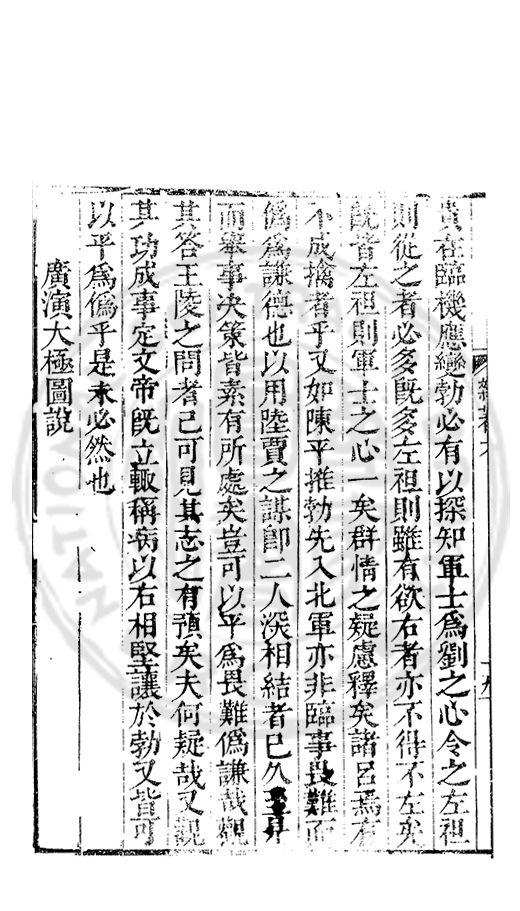 貴在臨機應變勃必有以探知軍士爲劉之心令之左袒
則從之者必多既多左袒則雖有欲右者亦不得不左矣
既皆左袒則軍士之心一矣群情之疑慮釋矣諸呂焉有
不成擒者乎又如陳平推勃先入北軍亦非臨事畏難而
僞爲謙德也以用陸賈之謀卽二人深相結者已久至是
而舉事决策皆素有所處矣豈可以平爲畏難僞謙哉觀
其答王陵之問者已可見其志之有預矣夫何疑哉又觀
其功成事定文帝既立輙稱病以右相堅讓於勃又皆可
以平爲僞乎是未必然也
廣演太極圖說